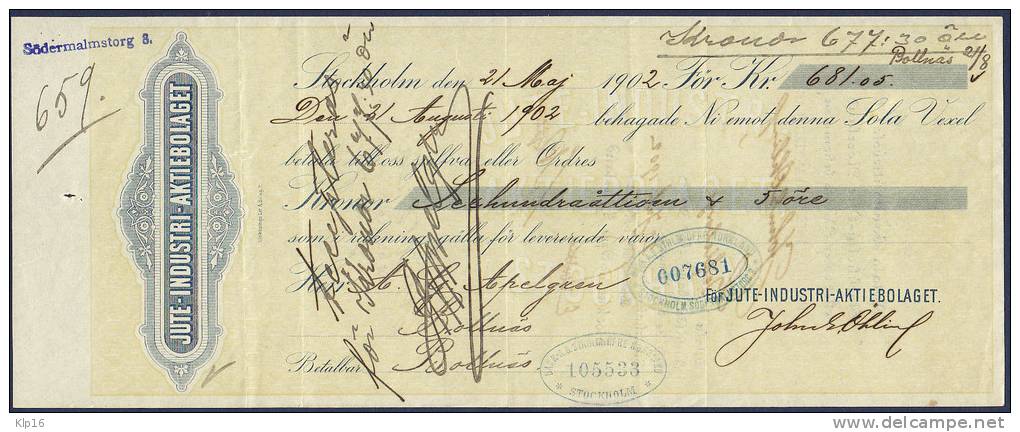 Södermalmstorg 8.
659.
Kronor 677:30 öre
Bollnäs 21/8
Stockholm den 21 Maj 1902 För Kr. 681.05.
Den 21 Augusti 1902 behagade Ni emot denna Sola Vexel
betala till oss sjelfva eller Ordres
Kronor Sexhundraåttioen & 5 öre
som i räkning gälla för levererade varor.
007681
För JUTE-INDUSTRI-AKTIEBOLAGET.
Herr A. G. Apelgren
Bollnäs
Betalbar Bollnäs
105533
STOCKHOLM
JUTE-INDUSTRI-AKTIEBOLAGET
för Kronor 677:30 öre
Klp16
delcampe.net